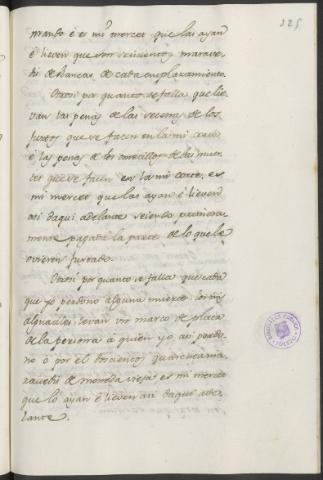 325
mando é es mi merced que las ayan
é lieven que son seiscientos marave-
dis de blancas de cada emplazamiento.
Otrosi por quanto se falla que lie-
van las penas de las secenas de los
furtos que se facen en la mi corte
é las penas de los omecillos de las muer-
tes que se facen en la mi corte, es
mi merced que las ayan é lieven
asi daqui adelante seiendo primera-
mente pagada la parte de lo que le
ovieren furtado.
Otrosi por quanto se falla que cada
que yo perdono alguna muerte los mis
alguaciles levan un marco de plata
de la persona á quien yo asi perdo-
no ó por el trecientos quarenta ma-
ravedis de moneda vieja es mi merced
que lo ayan é lieven asi daqui ade-
lante.